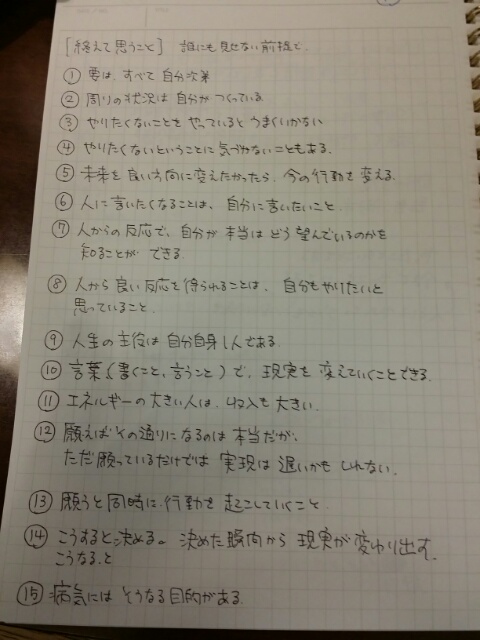 [終えて思うこと] 誰にも見せない前提で.
① 要は、すべて自分次第
② 周りの状況は自分がつくっている
③ やりたくないことをやっているとうまくいかない
④ やりたくないということに気づかないこともある.
⑤ 未来を良い方向に変えたかったら、今の行動を変える.
⑥ 人に言いたくなることは、自分に言いたいこと.
⑦ 人からの反応で、自分が本当はどう望んでいるのかを
知ることができる.
⑧ 人から良い反応を得られることは、自分もやりたいと
思っていること.
⑨ 人生の主役は自分自身1人である.
⑩ 言葉(書くこと、言うこと)で、現実を変えていくことできる.
⑪ エネルギーの大きい人は、収入も大きい.
⑫ 願えばその通りになるのは本当だが、
ただ願っているだけでは実現は遅いかもしれない.
⑬ 願うと同時に、行動を起こしていくこと
⑭ こうすると決める。決めた瞬間から現実が変わり出す.
こうなると
⑮ 病気にはそうなる目的がある.